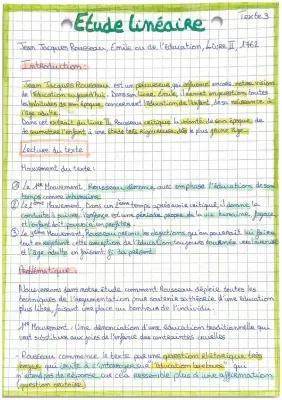 Etude linéaire
Texte 3
Jean Jacques Rousseau, Emile ou de l'éducation, Livre II, 1762
Introduction :
Jean Jacques Rousseau est un précurseur qui influence encore notre vision
de l'éducation aujourd'hui. Dans son livre, Emile, il remet en question toutes
les habitudes de son époque, concernant l'éducation de l'enfant, de sa naissance à
l'âge adulte.
Dans cet extrait du livre II, Rousseau critique la volonté de son époque de
soumettre l'enfant à une étude très rigoureuse, dès le plus jeune âge.
Lecture du texte :
Mouvement du texte :
① Le 1er Mouvement, Rousseau dénonce avec emphase l'éducation de son
temps comme inhumaine.
② Le 2ème Mouvement, Dans un 2ème temps après avoir critiqué, il donne la
conduite à suivre : l'enfance est une période propre de la vie humaine, fugace
et l'enfant doit pouvoir en profiter.
③ Le 3ème Mouvement, Rousseau prévient les objections qu'on pourrait lui faire
tout en rejetant cette conception de l'éducation toujours tournée vers l'avenir
et l'âge adulte en faisant fi du présent.
Problématique :
Nous verrons dans notre étude comment Rousseau déploie toutes les
techniques de l'argumentation pour soutenir sa théorie d'une éducation
plus libre, faisant une place au bonheur de l'individu.
1er Mouvement : Une dénonciation d'une éducation traditionnelle qui
veut substituer aux joies de l'enfance des contraintes cruelles
- Rousseau commence le texte par une question rhétorique très
longue qui invite à s'interroger sur "l'éducation barbare" qui
n'attend pas de réponse car cela ressemble plus à une affirmation
question oratoire.